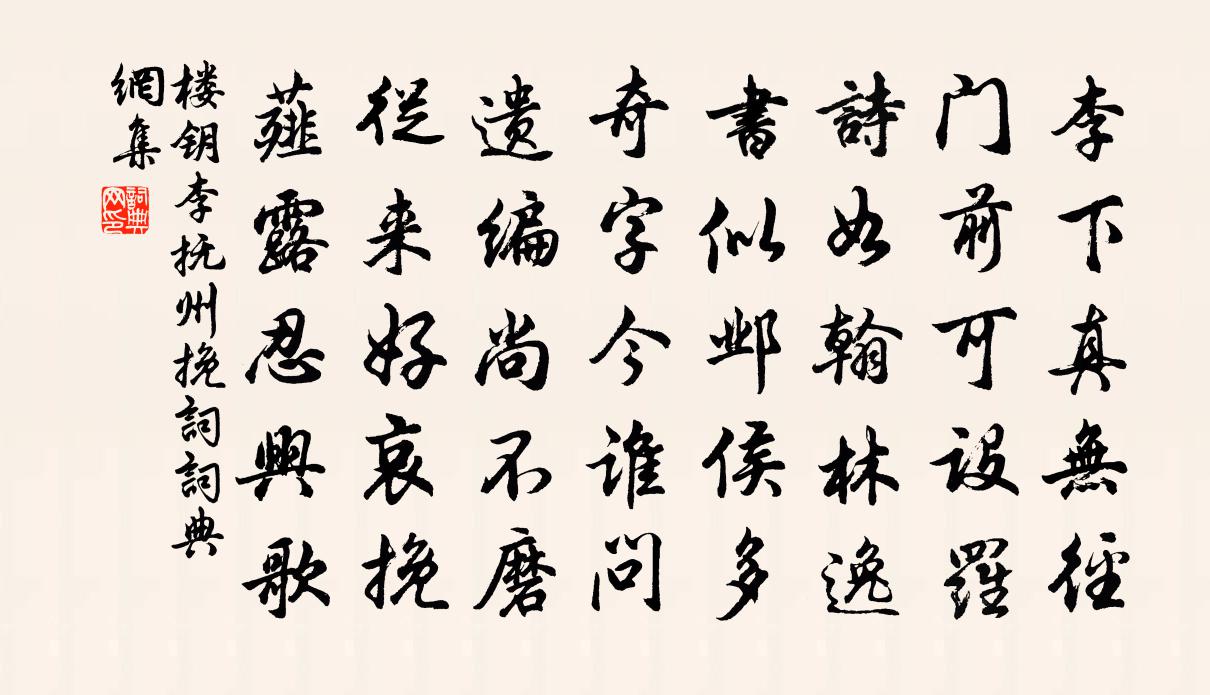 李下真無徑
门前可設羅
詩如翰林逸
書似邺侯多
奇字今谁问
遗编尚不磨
從来好哀挽
薤露忍興歌
楼钥李抚州挽詞詞典
網集
詞典
网印